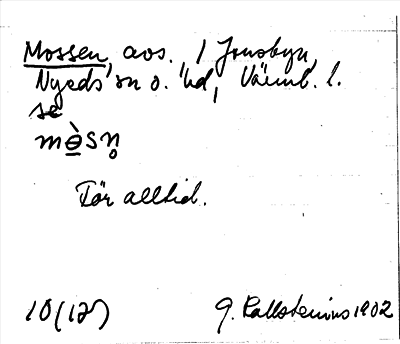 Mossen, avs. / Jonsbyn,
Nyeds sn o. hd, Värml. l.
se
mòsn̥
För alltid.
10(12) G. Kallstenius 1902